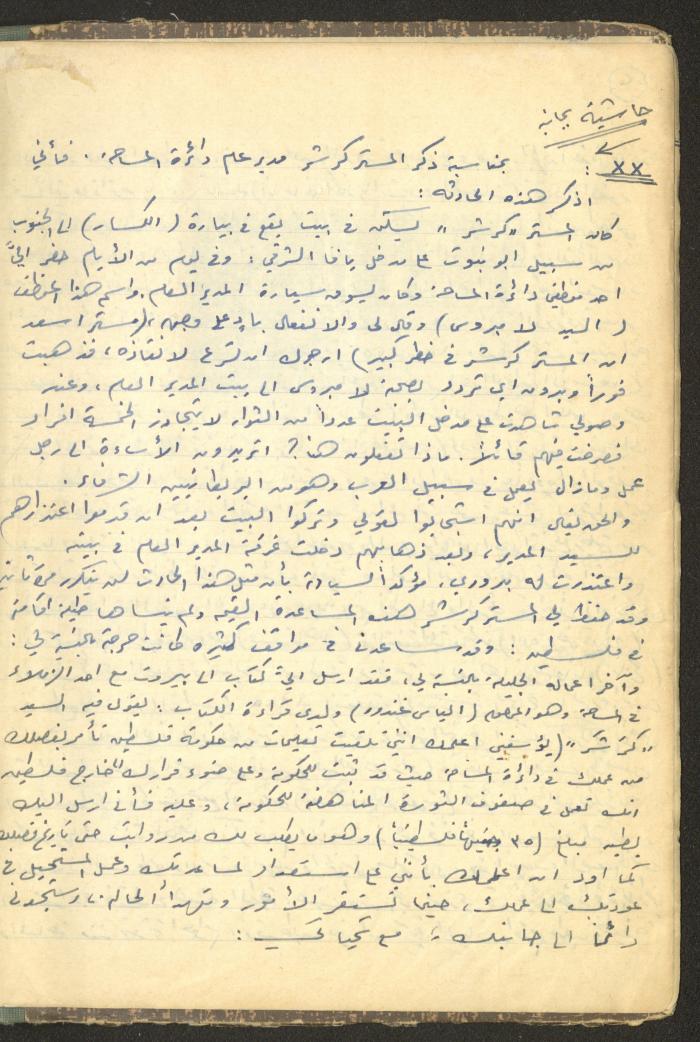 حاشية بجانبه
×× : بمناسبة ذكر المستر كرشر مدير عام دائرة المساحة. فأني
اذكر هذه الحادثه :
كان المستر "كرشر" يسكن في بيت يقع في بيارة (الكسار) الى الجنوب
من سبيل ابو نبوت على مدخل يافا الشرقي : وفي يوم من الأيام حضر اليّ
احد موظفي دائرة المساحة وكان يسوق سيارة المدير العام. واسم هذا الموظف
(السيد لامبروس) وقال لي والانفعال بادٍ على وجهه، (مستر اسعد
ان المستر كرشر في خطر كبير) ارجوك ان تسرع لانقاذه، فذهبت
فوراً وبدون اي تردد بصحبة لامبروس الى بيت المدير العام، وعند
وصولي شاهدت على مدخل البيت عدداً من الثوار لا يتجاوز الخمسة افراد
فصرخت فيهم قائلاً. ماذا تفعلون هنا؟ اتريدون الأساءة الى رجل
عمل وما زال يعمل في سبيل العرب وهو من البريطانيين الشرفاء.
والحق يقال انهم استجابوا لقولي وتركوا البيت بعد ان قدموا اعتذارهم
للسيد المدير، وبعد ذهابهم دخلت غرفة المدير العام في بيته
واعتذرت له بدوري. مؤكداً لسيادته بأن مثل هذا الحادث لن يتكرر مرة ثانية
وقد حفظ لي المستر كرشر هذه المساعدة القيمه ولم ينساها طيلة اقامته
في فلسطين : وقد ساعدني في مواقف كثيره كانت حرجة بالنسبة لي :
وآخر اعماله الجليلة بالنسبة لي، فقد ارسل اليّ كتاب الى بيروت مع احد الزملاء
في المساحة وهو المرحوم (الياس غندور) ولدى قراءة الكتاب : يقول فيه السيد
"كرشر" (يؤسفني اعلمك انني تلقيت تعليمات من حكومة فلسطين تأمر بفصلك
من عملك في دائرة المساحة حيث قد ثبت للحكومة وعلى ضوء فرارك لخارج فلسطين
انك تعمل في صفوف الثورة المناهضة للحكومة، وعليه فأني ارسل اليك
بطيه مبلغ (٣٥ جنيهاً فلسطينياً) وهو ما يطلب لك من رواتب حتى تاريخ فصلك
كما اود ان اعلمك بأنني على استعداد لمساعدتك وعمل المستحيل في
عودتك الى عملك، حينما تستقر الأمور وتهدأ الحاله، وستجدني
دائماً الى جانبك، مع تحياتي :